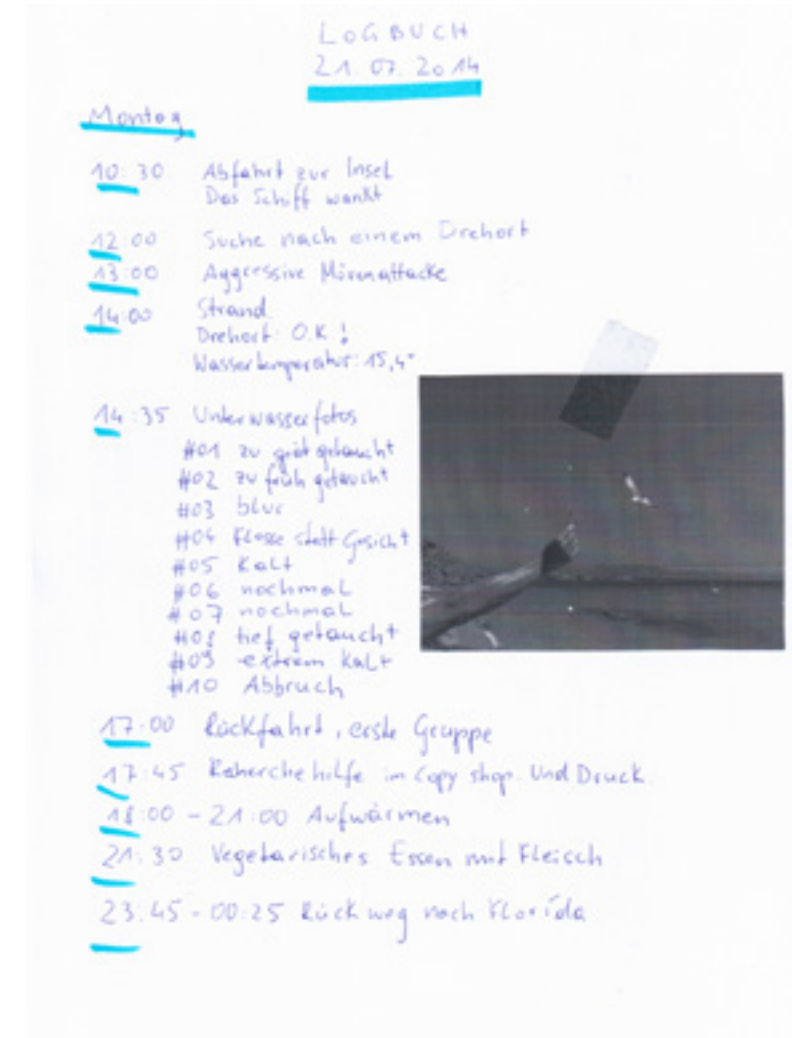 LOGBUCH
21.07.2014
Montag
10:30 Abfahrt zur Insel
Das Schiff wankt
12:00 Suche nach einem Drehort
13:00 Aggressive Mövenattacke
14:00 Strand
Drehort: O.K.!
Wassertemperatur: 15,4°
14:35 Unterwasserfotos
#01 zu spät getaucht
#02 zu früh getaucht
#03 blur
#04 Flosse statt Gesicht
#05 Kalt
#06 nochmal
#07 nochmal
#08 tief getaucht
#09 extrem Kalt
#10 Abbruch
17:00 Rückfahrt, erste Gruppe
17:45 Recherchehilfe im Copy shop. Und Druck.
18:00 - 21:00 Aufwärmen
21:30 Vegetarisches Essen mit Fleisch
23:45 - 00:25 Rückweg nach Florida